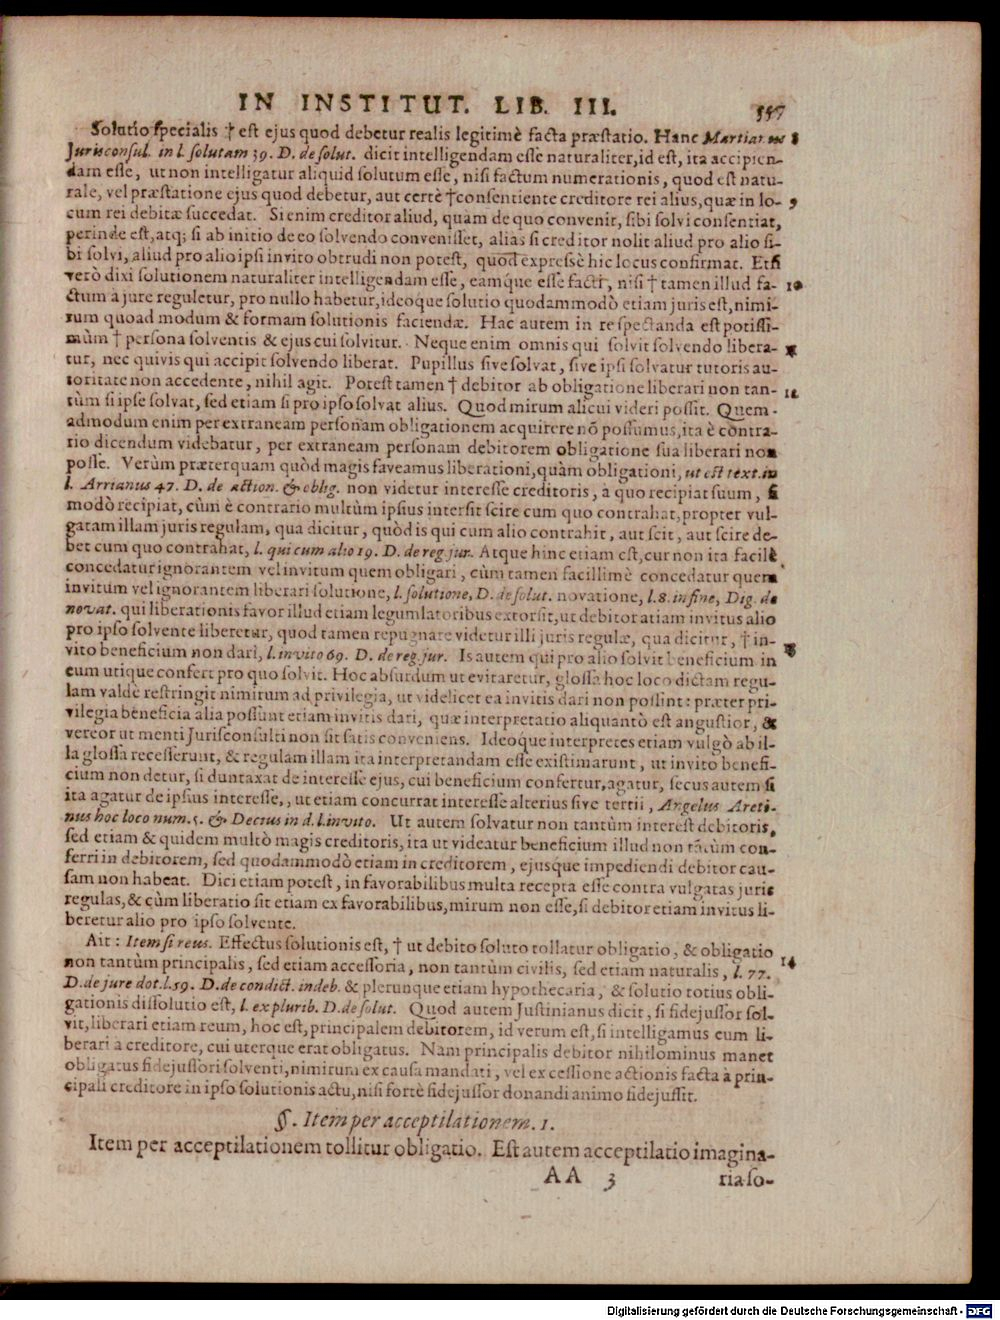 IN INSTITUT. LIB. III. 557
Solutio specialis † est ejus quod debetur realis legitimè facta præstatio. Hanc Martianus 8
Jurisconsul. in l. solutam 39. D. de solut. dicit intelligendam esse naturaliter, id est, ita accipien-
dam esse, ut non intelligatur aliquid solutum esse, nisi factum numerationis, quod est natu-
rale, vel præstatione ejus quod debetur, aut certè † consentiente creditore rei alius, quæ in lo- 9
cum rei debitæ succedat. Si enim creditor aliud, quam de quo convenit, sibi solvi consentiat,
perinde est, atq; si ab initio de eo solvendo convenisset, alias si creditor nolit aliud pro alio si-
bi solvi, aliud pro alio ipsi invito obtrudi non potest, quod expressè hic locus confirmat. Etsi
verò dixi solutionem naturaliter intelligendam esse, eamque esse facti, nisi † tamen illud fa- 10
ctum à jure reguletur, pro nullo habetur, ideoque solutio quodammodò etiam juris est, nimi-
rum quoad modum & formam solutionis faciendæ. Hac autem in re spectanda est potissi-
mùm † persona solventis & ejus cui solvitur. Neque enim omnis qui solvit solvendo libera-
tur, nec quivis qui accipit solvendo liberat. Pupillus sive solvat, sive ipsi solvatur tutoris au-
toritate non accedente, nihil agit. Potest tamen † debitor ab obligatione liberari non tan- 12
tùm si ipse solvat, sed etiam si pro ipso solvat alius. Quod mirum alicui videri possit. Quem-
admodum enim per extraneam personam obligationem acquirere nō possumus, ita è contra-
rio dicendum videbatur, per extraneam personam debitorem obligatione sua liberari non
posse. Verùm præterquam quòd magis faveamus liberationi, quàm obligationi, ut est text. in
l. Arrianus 47. D. de action. & oblig. non videtur interesse creditoris, à quo recipiat suum, si
modò recipiat, cùm è contrario multùm ipsius intersit scire cum quo contrahat, propter vul-
gatam illam juris regulam, qua dicitur, quòd is qui cum alio contrahit, aut scit, aut scire de-
bet cum quo contrahat, l. qui cum alio 19. D. de reg. jur. Atque hinc etiam est, cur non ita facilè
concedatur ignorantem vel invitum quem obligari, cùm tamen facillimè concedatur quem
invitum vel ignorantem liberari solutione, l. solutione, D. de solut. novatione, l. 8. in fine, Dig. de
novat. qui liberationis favor illud etiam legumlatoribus extorsit, ut debitor atiam invitus alio
pro ipso solvente liberetur, quod tamen repugnare videtur illi juris regulæ, qua dicitur, † in-
vito beneficium non dari, l. invito 69. D. de reg. jur. Is autem qui pro alio solvit beneficium in
eum utique confert pro quo solvit. Hoc absurdum ut evitaretur, glossa hoc loco dictam regu-
lam valdè restringit nimirum ad privilegia, ut videlicet ea invitis dari non possint: præter pri-
vilegia beneficia alia possunt etiam invitis dari, quæ interpretatio aliquantò est angustior, &
vereor ut menti Jurisconsulti non sit satis conveniens. Ideoque interpretes etiam vulgò ab il-
la glossa recesserunt, & regulam illam ita interpretandam esse existimarunt, ut invito benefi-
cium non detur, si duntaxat de interesse ejus, cui beneficium confertur, agatur, secus autem si
ita agatur de ipsius interesse, ut etiam concurrat interesse alterius sive tertii, Angelus Areti-
nus hoc loco num. 5. & Decius in d. l. invito. Ut autem solvatur non tantùm interest debitoris,
sed etiam & quidem multò magis creditoris, ita ut videatur beneficium illud non tātùm con-
ferri in debitorem, sed quodammodò etiam in creditorem, ejusque impediendi debitor cau-
sam non habeat. Dici etiam potest, in favorabilibus multa recepta esse contra vulgatas juris
regulas, & cùm liberatio sit etiam ex favorabilibus, mirum non esse, si debitor etiam invitus li-
beretur alio pro ipso solvente.
Ait: Item si reus. Effectus solutionis est, † ut debito soluto tollatur obligatio, & obligatio 14
non tantùm principalis, sed etiam accessoria, non tantùm civilis, sed etiam naturalis, l. 77.
D. de jure dot. l. 59. D. de condict. indeb. & plerunque etiam hypothecaria, & solutio totius obli-
gationis dissolutio est, l. ex plurib. D. de solut. Quod autem Justinianus dicit, si fidejussor sol-
vit, liberari etiam reum, hoc est, principalem debitorem, id verum est, si intelligamus eum li-
berari à creditore, cui uterque erat obligatus. Nam principalis debitor nihilominus manet
obligatus fidejussori solventi, nimirum ex causa mandati, vel ex cessione actionis facta à prin-
cipali creditore in ipso solutionis actu, nisi fortè fidejussor donandi animo fidejussit.
§. Item per acceptilationem. 1.
Item per acceptilationem tollitur obligatio. Est autem acceptilatio imagina-
AA 3 ria so-
Digitalisierung gefördert durch die Deutsche Forschungsgemeinschaft - DFG